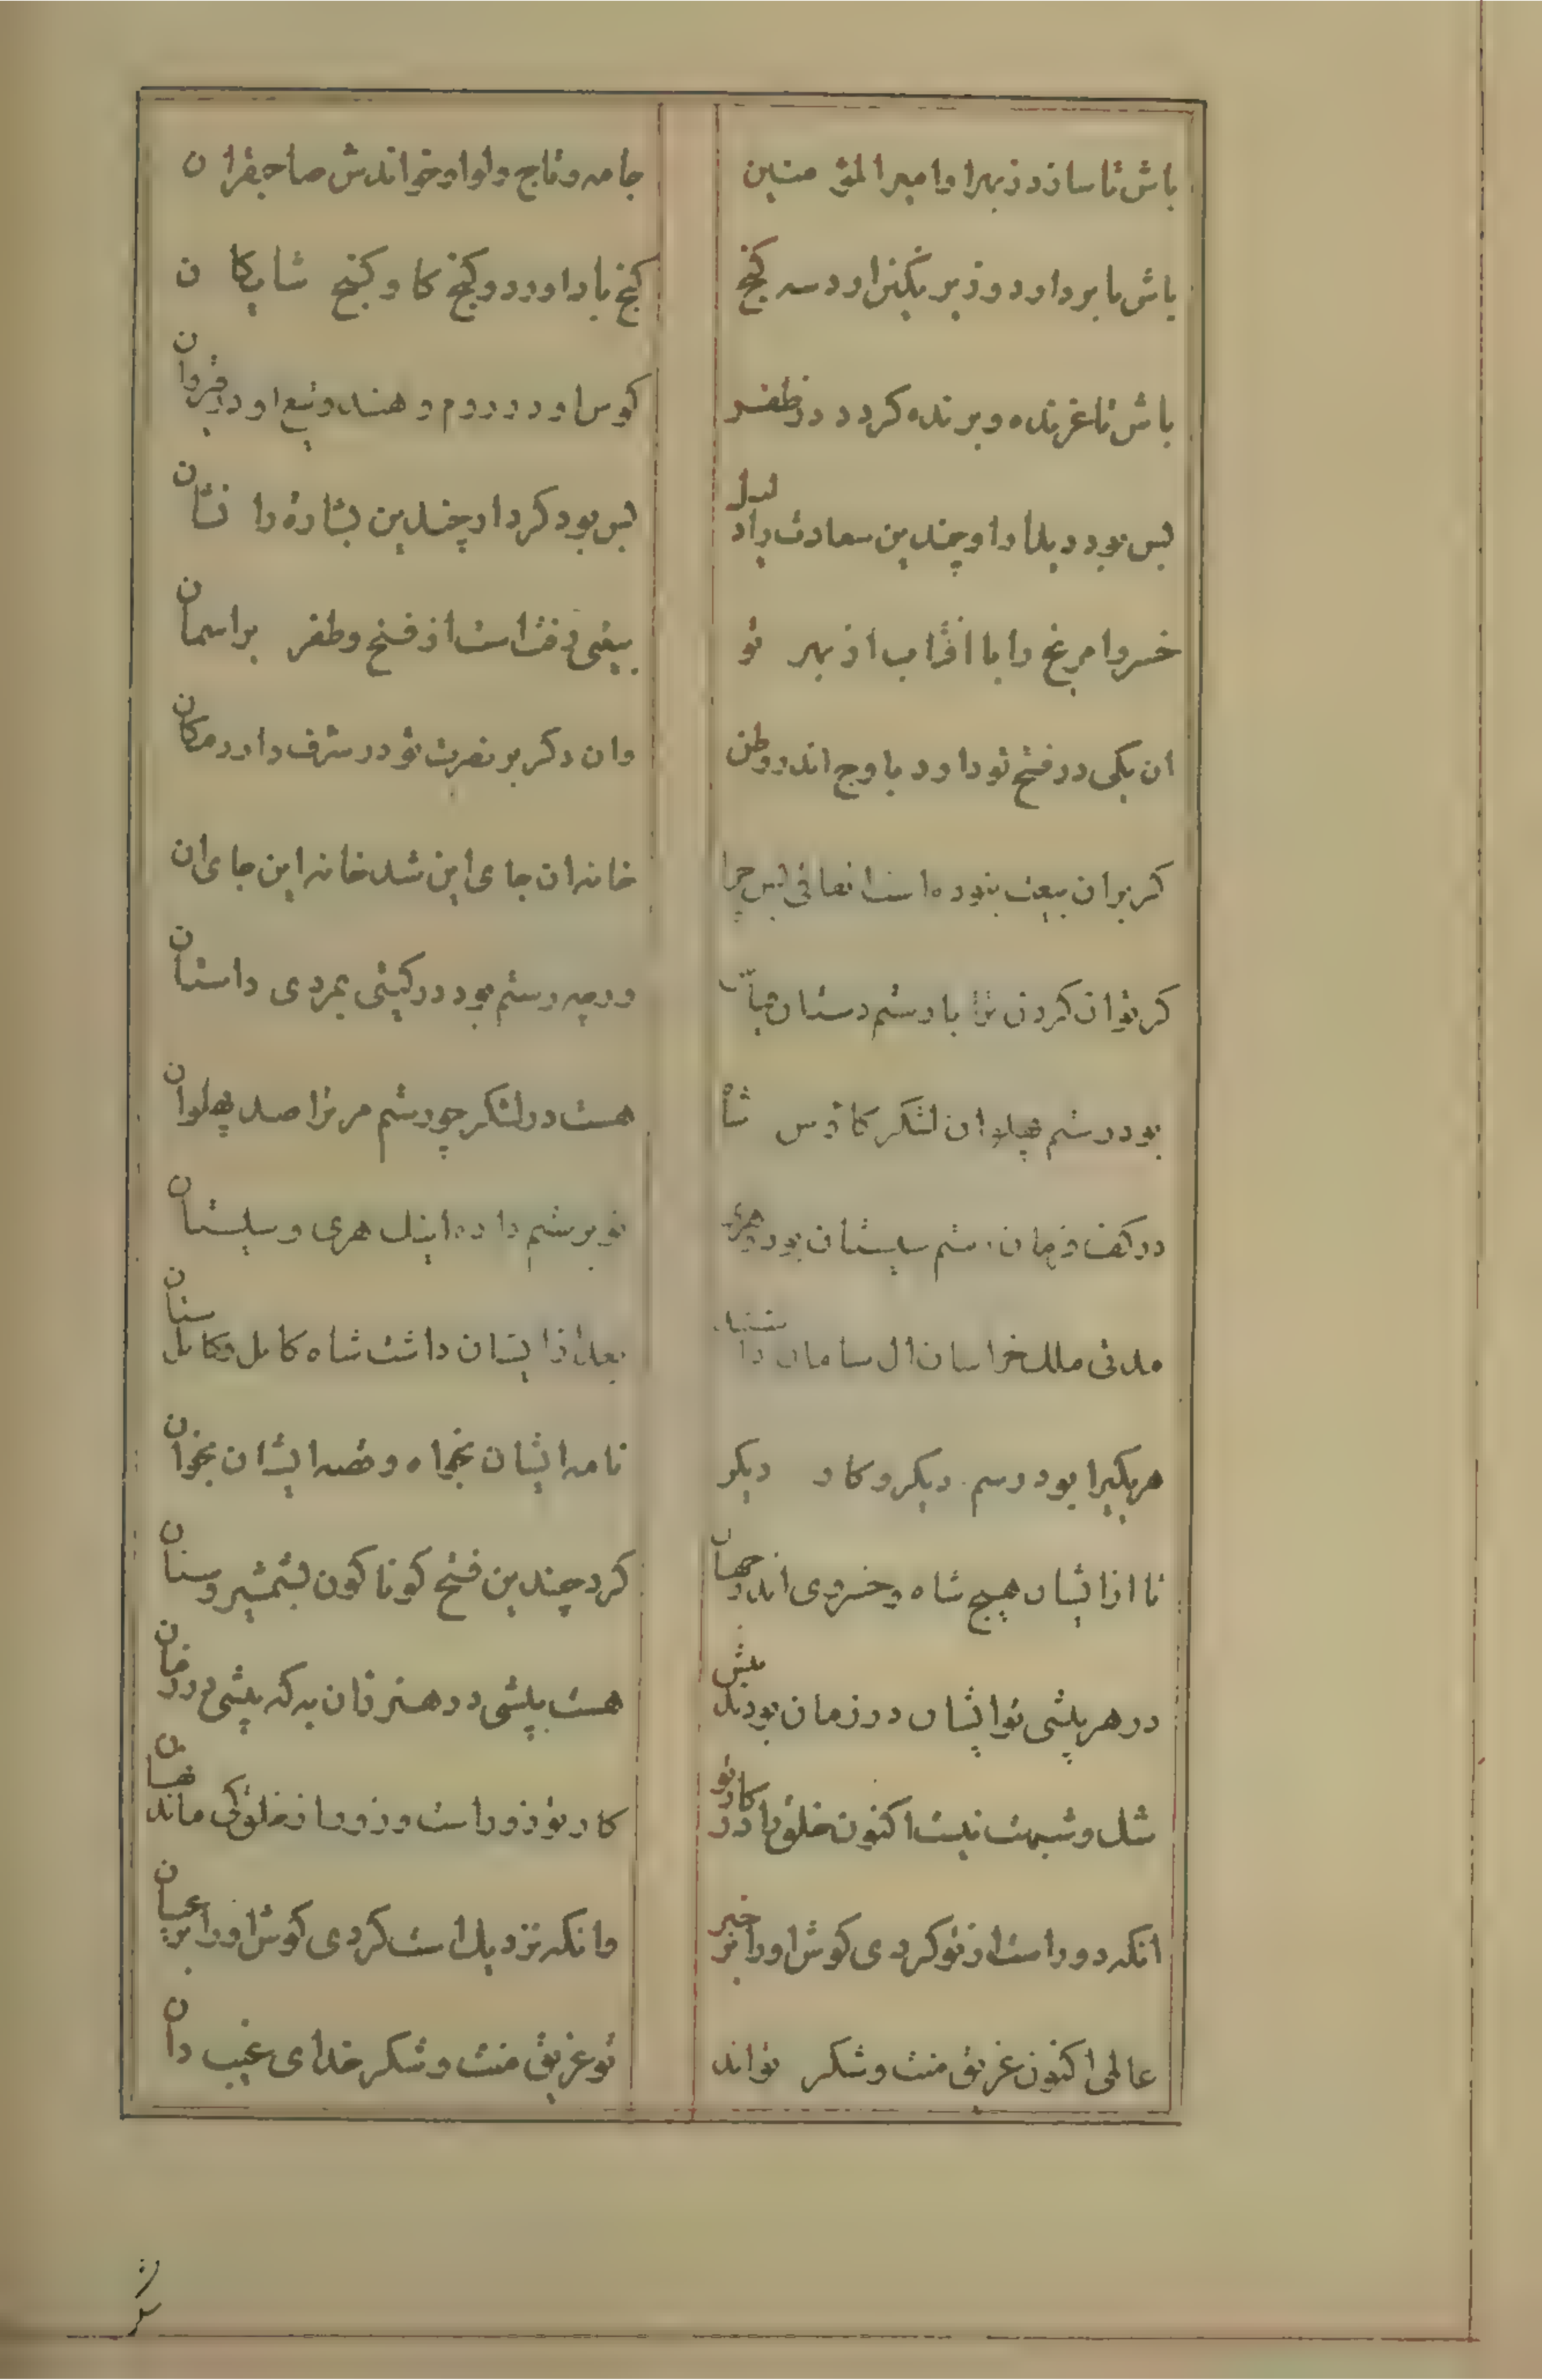 باش تا سازد ز بهر او امیر المؤمنین
جامه و تاج و لوا و خواندش صاحبقران
باش تا بردارد و زیر نگین آرد سه گنج
گنج باد آورد و گنج گاو و گنج شایگان
باش تا غرنده و برنده گردد در ظفر
کوس او در روم و هند و تیغ او در قیروان
بس بود دیدار او چندین سعادت را دلیل
بس بود کردار چندین بشارة را نشان
خسروا مریخ را با افتاب از بهر تو
بیعتی رفت است از فتح و ظفر بر اسمان
ان یکی در فتح تو دارد باوج اندر وطن
وان دکر بر نصرت تو در شرف دارد مکان
کر بران بیعت نبوده است اتفاقی پس چرا
خانه ان جای این شد خانه این جای ان
کر توان کردن ترا با رستم دستان قیاس
ورچه رستم بود در کیتی بمردی داستان
بود رستم پهلوان لشکر کاوس شاه
هست در لشکر چو رستم مر ترا صد پهلوان
در کف فرمان رستم سیستان بود و هری
تو برستم داده اینک هری و سیستان
مدتی ملک خراسان ال سامان داشتند
بعد از ایشان داشت شاه کابل و کابلستان
هر یکیرا بود رسم دیکر و کار دیکر
نامه ایشان بخواه و قصه ایشان بخوان
تا از ایشان هیچ شاه و خسروی اندر جهان
کرد چندین فتح کوناکون بشمشیر و سنان
در هر پیشی تو ایشان در زمان بودند پیش
هست پیشی در هنر زان به که پیشی در زمان
شک و شبهت نیست اکنون خلق را در کار تو
کار تو زور است و زور از خلق کی ماند نهان
انکه دور است از تو کردی کوش او را پر خبر
وانکه نزدیک است کردی کوش او را پر عیان
عالمی اکنون غریق منت و شکر تواند
تو غریق منت و شکر خدای غیب دان